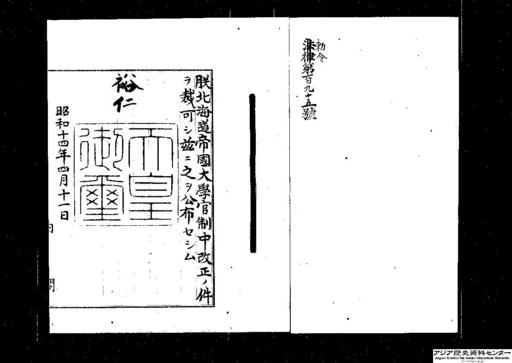 勅令
法律第百九十五號
朕北海道帝國大學官制中改正ノ件
ヲ裁可シ茲ニ之ヲ公布セシム
裕仁
天皇
御璽
昭和十四年四月十一日
内閣
アジア歴史資料センター
Japan Center for Asian Historical Records